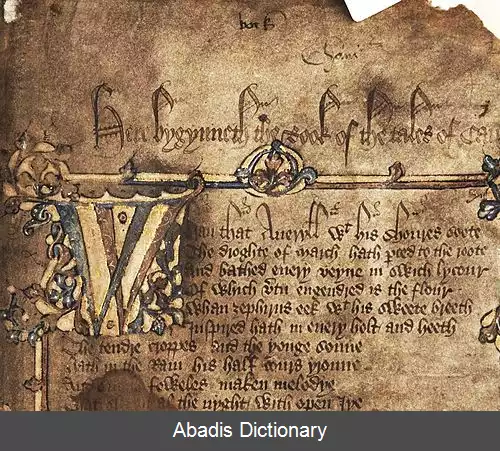 Here bygynneth the Book of the tales of Ca
Whan that Aueryll wt his shoures soote
The droghte of march hath pced to the roote
And bathed euery veyne in swich lycour
Of which vtu engendred is the flour
Whan zephirus eek wt his sweete breeth
Inspired hath in euery holt and heeth
The tendre croppes and the yonge sonne
Hath in the Ram his half cours yronne
And foweles maken melodye
the nyght with open Iye
Abadis Dictionary